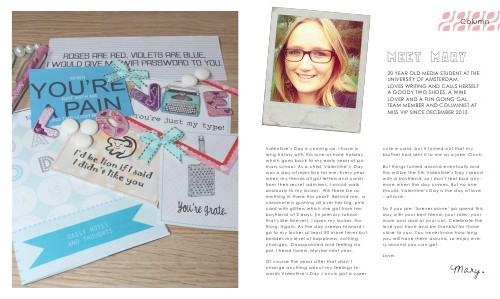 ROSES ARE RED, VIOLETS ARE BLUE,
I WOULD GIVE MY WIFI PASSWORD TO YOU.
YOU'RE
PAIN
You're just my type!
I'd be lion if I said
I didn't like you
You're grate.
DAILY NOTES
AND THOUGHTS
Column
MEET MARY
20 YEAR OLD MEDIA STUDENT AT THE
UNIVERSITY OF AMSTERDAM.
LOVES WRITING AND CALLS HERSELF
A GOODY TWO SHOES, A WINE
LOVER AND A FUN GOING GAL.
TEAM MEMBER AND COLUMNIST AT
MISS VIP SINCE DECEMBER 2013.
Valentine's Day is coming up. I have a
long history with this love or hate holiday,
which goes back to my early years of pri-
mary school. As a child, Valentine's Day
was a day of rejection for me. Every year
when my friends all got letters and cards
from their secret admirers, I would walk
anxiously to my locker. Will there be so-
mething in there this year? Behind me, a
classmate is gushing all over her big, pink
card with glitters which she got from her
boyfriend of 2 days. (In primary school,
that's like forever). I open my locker. No-
thing. Again. As the day creeps forward I
go to my locker at least 50 more times but
besides my level of happiness, nothing
changes. Disappointed and feeling stu-
pid, I head home. Maybe next year.
Of course the years after that didn't
change anything about my feelings to-
wards Valentine's Day. I once got a super
cute e-card, but it turned out that my
brother had sent it to me as a joke. Ouch.
But things turned around eventually and
this will be the 5th Valentine's Day I spend
with a boyfriend, so I don't feel bad any-
more when the day comes. But no one
should. Valentine's Day is the day of love
- all love.
So if you are 'forever alone' go spend this
day with your best friend, your sister, your
mom and dad or your cat. Celebrate the
love you have and be thankful for those
close to you. You never know how long
you will have them around, so enjoy eve-
ry second you can get!
Love,
Mary.